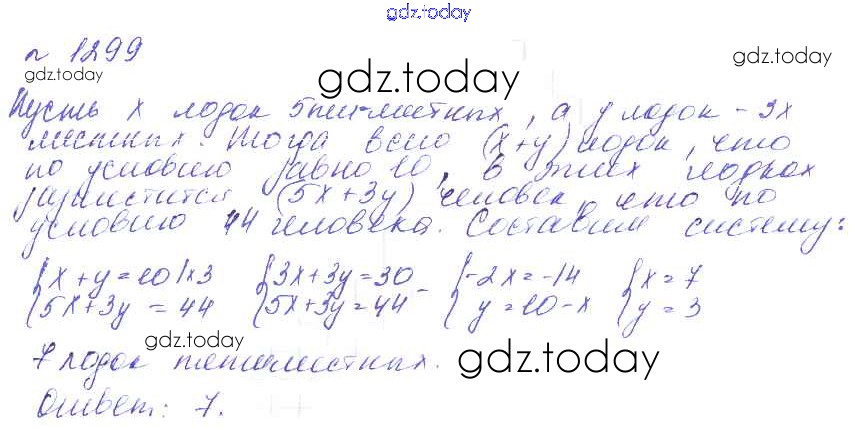 gdz.today
№ 1299
gdz.today
gdz.today
gdz.today
Пусть x лодок 5пятиместных, а y лодок - 3х
местных. Тогда всего (x+y) лодок, что
по условию равно 10, в этих лодках
разместится (5x+3y) человек, что по
условию 44 человека. Составим систему:
{x+y=10|x3 {3x+3y=30 - {-2x=-14 {x=7
{5x+3y=44 {5x+3y=44 {y=10-x {y=3
gdz.today
gdz.today
7 лодок пятиместных.
Ответ: 7.